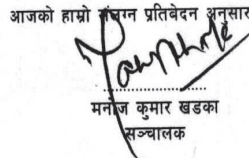 आजको हाम्रो संलग्न प्रतिवेदन अनुसार
मनोज कुमार खडका
सञ्चालक